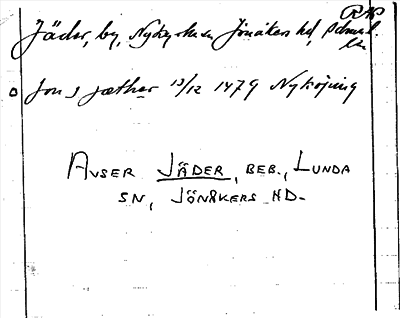 RAP
Jäder, by, Nyky sn Jönåkers hd, Södermanl.
län
Jon j jæther 13/12 1479 Nyköping
AVSER JÄDER, BEB., LUNDA
SN, JÖNÅKERS HD.